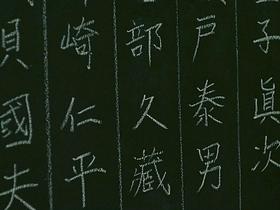 子眞次
戸泰男
部久藏
崎仁平
貝國夫